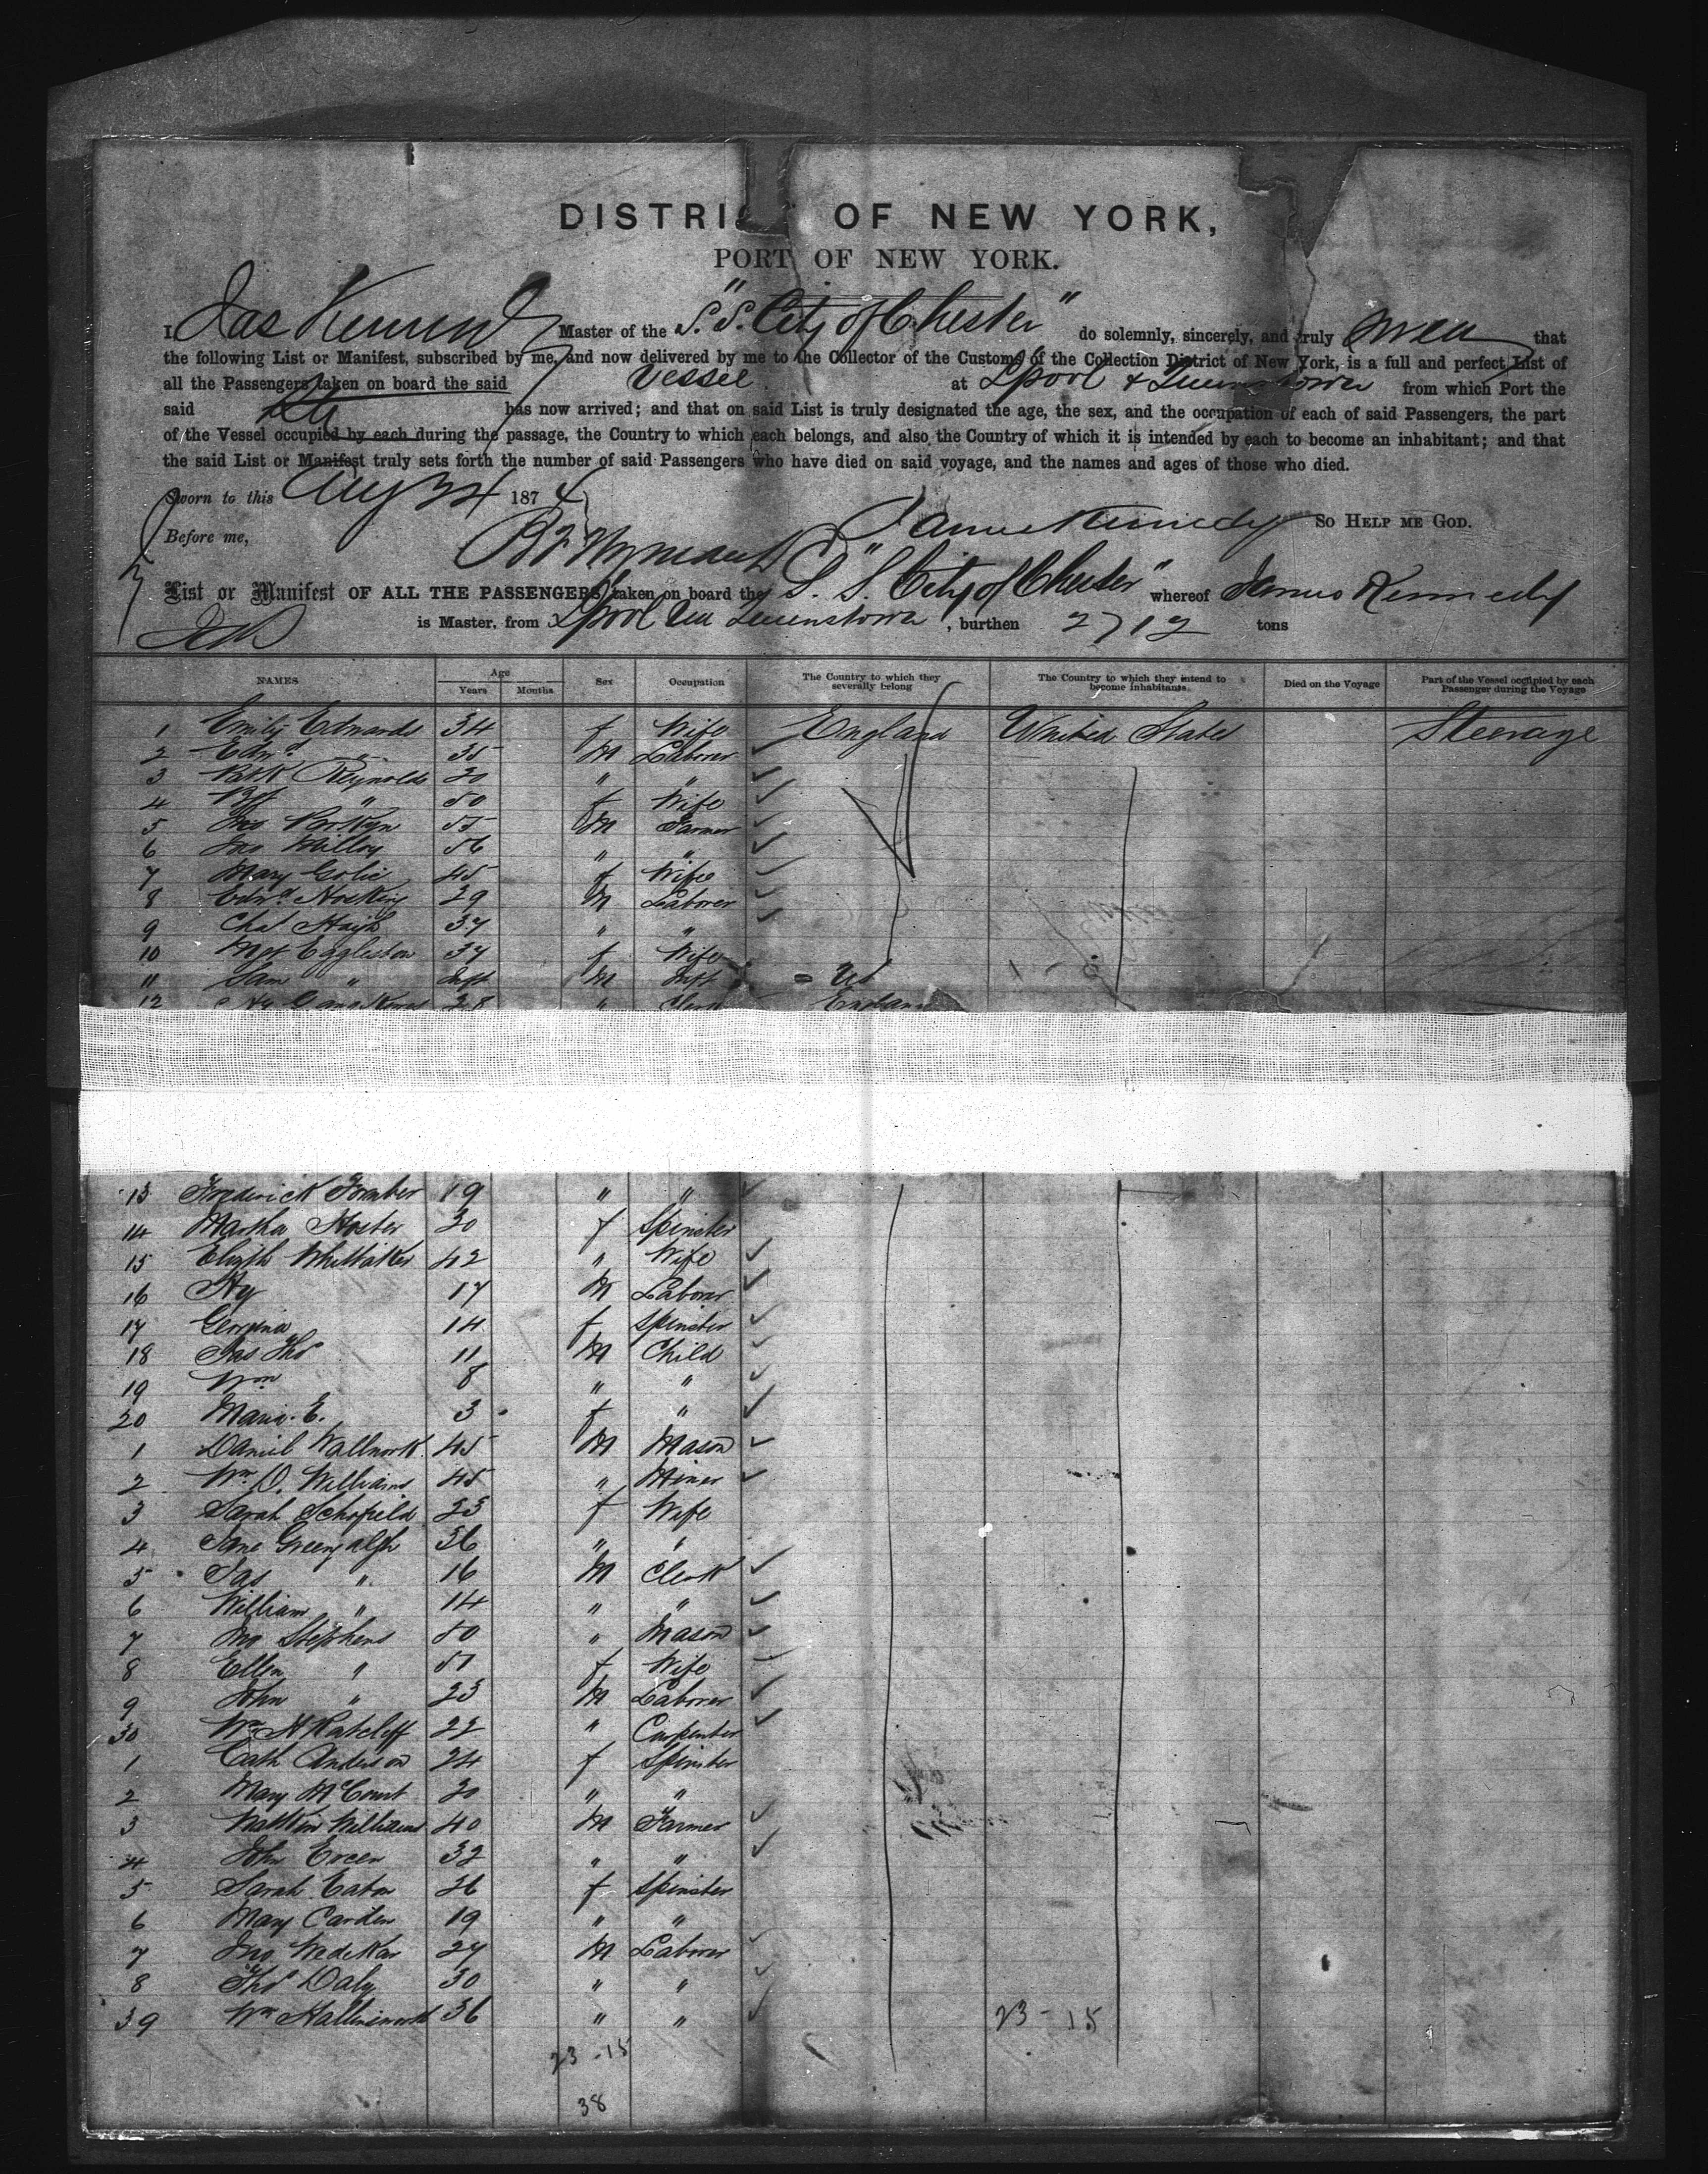 DISTRICT OF NEW YORK,
PORT OF NEW YORK.
I, Jas Kennedy Master of the "S.S. City of Chester" do solemnly, sincerely, and truly swear that
the following List or Manifest, subscribed by me, and now delivered by me to the Collector of the Customs of the Collection District of New York, is a full and perfect List of
all the Passengers taken on board the said Vessel at Lpool & Queenstown from which Port the
said has now arrived; and that on said List is truly designated the age, the sex, and the occupation of each of said Passengers, the part
of the Vessel occupied by each during the passage, the Country to which each belongs, and also the Country of which it is intended by each to become an inhabitant; and that
the said List or Manifest truly sets forth the number of said Passengers who have died on said voyage, and the names and ages of those who died.
Sworn to this Aug 187 4
James Kennedy SO HELP ME GOD.
Before me,
List or Manifest OF ALL THE PASSENGERS taken on board the "S. S. City of Chester" whereof James Kennedy
is Master, from Lpool via Queenstown, burthen 2712 tons
NAMES Age Years Months Sex Occupation The Country to which they severally belong The Country to which they intend to become inhabitants. Died on the Voyage Part of the Vessel occupied by each Passenger during the Voyage
1 Emily Edwards 34 f Wife England United States Steerage
2 Edwd " 35 M Laborer
3 Patk Reynolds 20 " "
4 " 50 f Wife
5 55 M Farmer
6 Jno Milloy 56 " "
7 Mary 45 f Wife
8 Edwd Hosking 29 M Laborer
9 Chas Haigh 37 " "
10 Mgt Eggleston 37 f Wife
11 Sam " Inft M Inft US
12 Hy 28 " Clerk England
13 Frederick 19 " "
14 Martha Hoster 20 f Spinster
15 Elizth Whittaker 42 " Wife
16 Hy 17 M Laborer
17 Georgina 14 f Spinster
18 Jas Thos 11 M Child
19 Wm 8 " "
20 Maria E. 3 f "
1 Daniel Wallwork 45 M Mason
2 Wm O. Williams 45 " Miner
3 Sarah Schofield 23 f Wife
4 Jane Greenhalgh 36 " "
5 Jas " 16 M Clerk
6 William " 14 " "
7 Jno Stephens 50 " Mason
8 Ellen " 51 f Wife
9 John " 23 M Laborer
30 Wm H Ratcliff 22 " Carpenter
1 Cath Anderson 24 f Spinster
2 Mary McCourt 20 " "
3 Williams 40 M Farmer
4 John 32 " "
5 Sarah Eaton 26 f Spinster
6 Mary Carden 19 " "
7 Jno 27 M Laborer
8 Thos Daly 30 " "
39 Wm 36 " " 23 - 15
23 - 15
38